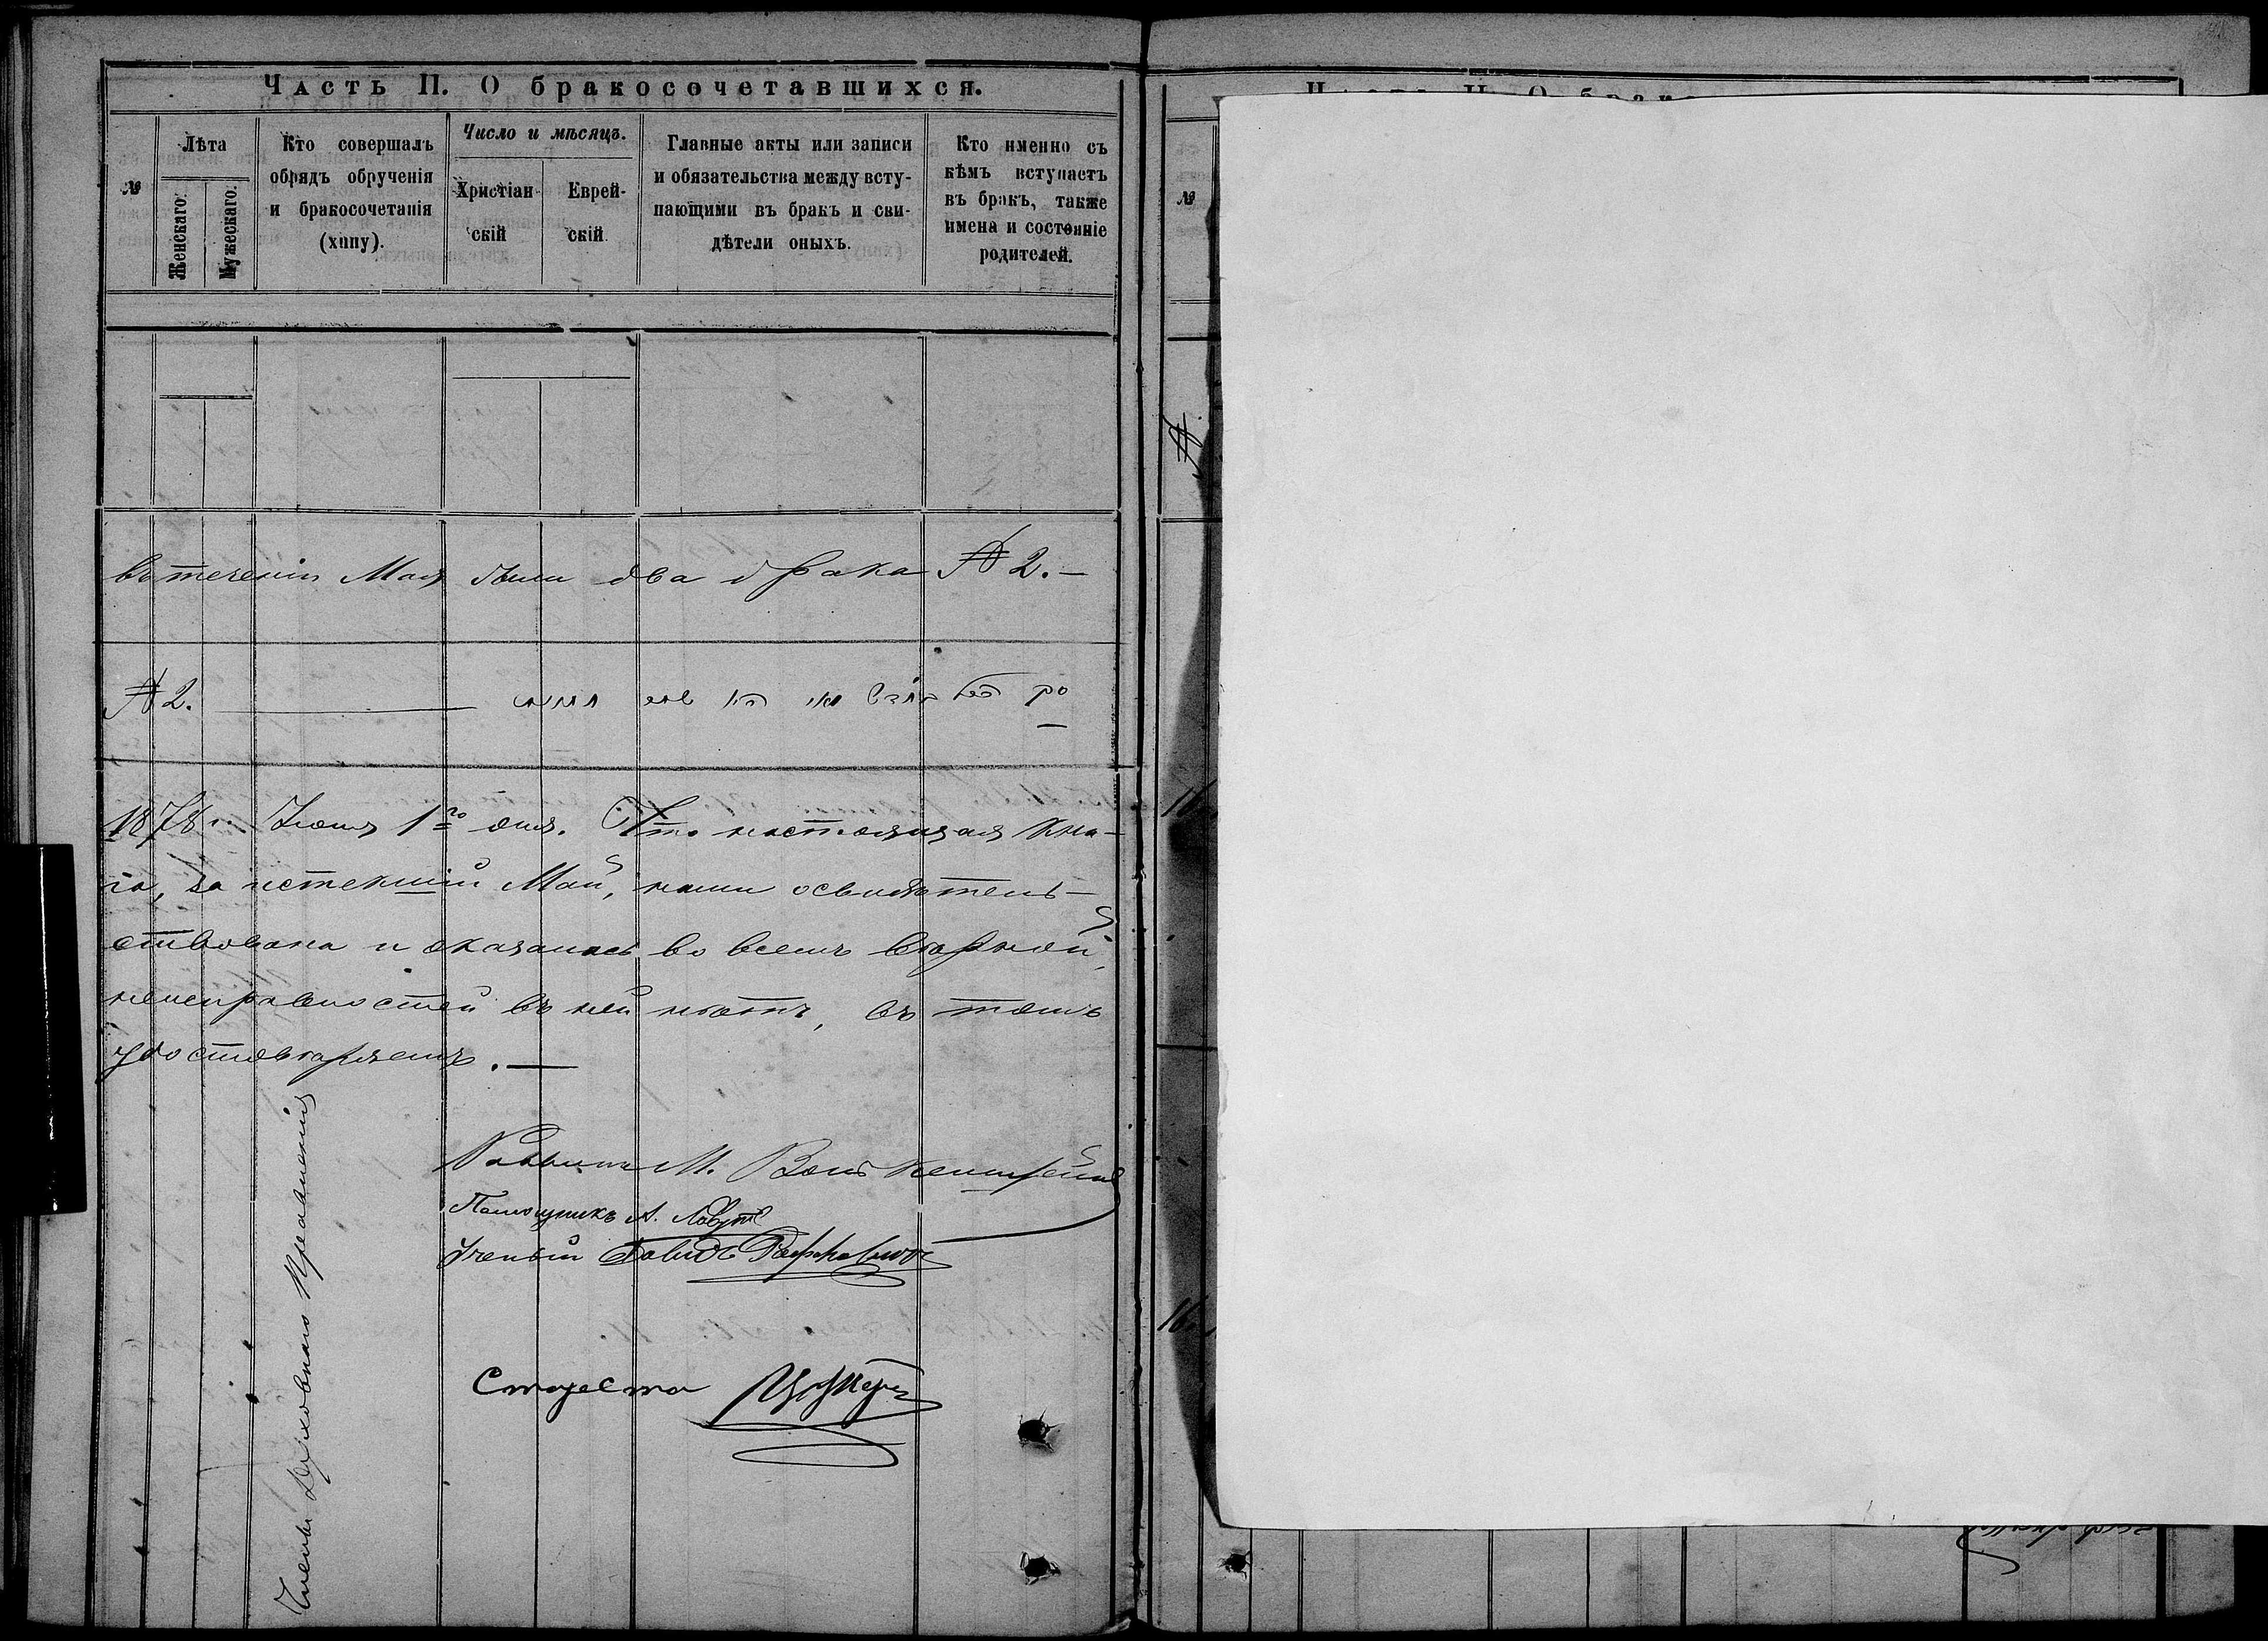 Часть II. О бракосочетавшихся.
№
Лѣта
Женскаго.
Мужескаго.
Кто совершалъ
обрядъ обрученія
и бракосочетанія
(хипу).
Число и мѣсяцъ.
Христіан-
скій
Еврей-
скій
Главные акты или записи
и обязательства между всту-
пающими въ бракъ и сви-
дѣтели оныхъ.
Кто именно съ
кѣмъ вступаетъ
въ бракъ, также
имена и состояніе
родителей.
въ теченіи Мая были два брака № 2.—
№ 2.
1878 г. Іюня 1го дня. Что настоящая кни-
га, за истекшій Май, нами освидѣтель-
ствована и оказалась во всемъ вѣрной,
неисправностей въ ней нѣтъ, въ томъ
удостовѣряемъ.—
Члены Духовнаго Правленія
Раввинъ М.
Помощникъ А.
Ученый Давидъ
Староста
№